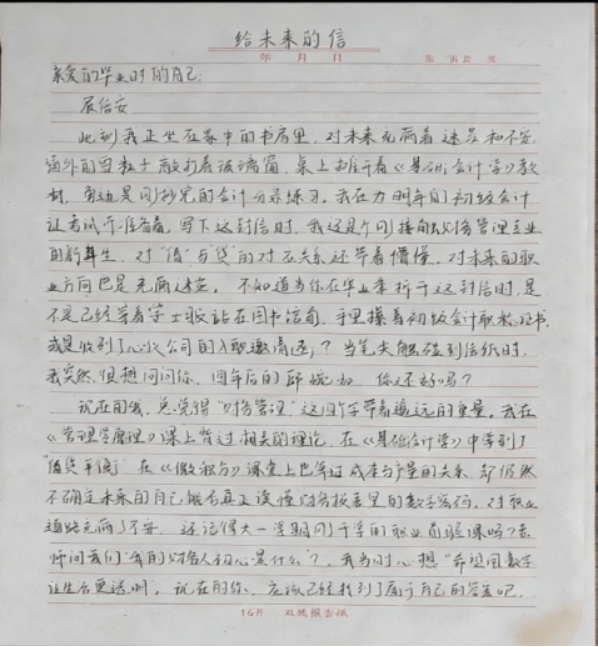 给未来的信
年 月 日
亲爱的毕业时的自己:
展信安
此刻我正坐在家中的书房里,对未来充满着迷茫和不安
窗外的雪粒子敲打着玻璃窗,桌上摊开着《基础会计学》教
材,旁边是刚抄完的会计分录练习,我在为明年的初级会计
证考试作准备着,写下这封信时,我还是个刚接触财务管理专业
的新生,对“借”与“贷”的对应关系还带着懵懂,对未来的职
业方向也是充满迷茫。不知道当你在毕业季拆开这封信时,是
不是已经穿着学士服站在图书馆前,手里攥着初级会计职称证书,
或是收到了心仪公司的入职邀请函,?当笔尖触碰到信纸时,
我突然很想问问你,四年后的 你还好吗?
现在的我,总觉得“财务管理”这四个字带着遥远的重量,我在
《管理学原理》课上背过相关的理论,在《基础会计学》中学到了
借贷平衡”在《微积分》课堂上也算过成本与产量的关系,却仍然
不确定未来的自己能否真正读懂财务报表里的数字密码,对职业
道路充满了不安。还记得大一学期刚开学的职业 课吗?老
师问我们“我的财务人初心是什么”?,我当时心想“希望用数字
让生活更透明”,现在的你,应该已经找到了属于自己的答案吧。
16开 双线报告纸